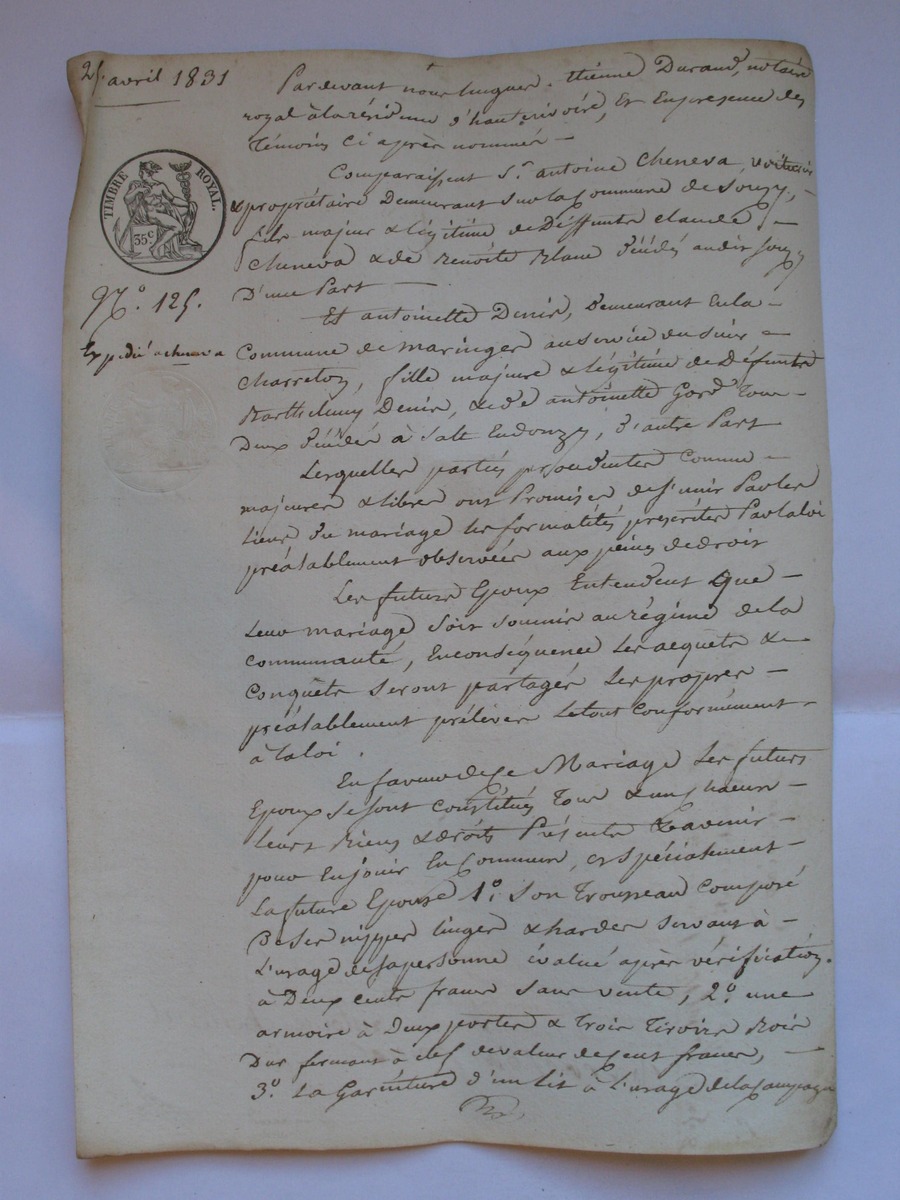 25 avril 1831
TIMBRE ROYAL.
35 c
No. 125.
Expédié a cheneva
Pardevant nous hugues étienne Durand, notaire
royal à la résidence d'hauterivoire, Et En presence des
Témoins Ci après nommés —
Comparaissent Sr. antoine Cheneva, voiturier
& propriétaire Demeurant sur la Commune de Souzy,
fils majeur & légitime de Déffunts claude —
Cheneva & de Benoite Blanc Décédés audit Souzy
D'une Part —
Et antoinette Denis, Demeurant En la —
Commune de maringes au service du sieur —
Charreton, fille majeure & légitime de Défunts
Barthelemy Denis, & de antoinette Gord Tous
Deux Décédés à Salt En donzy, D'autre Part
Lesquelles parties procedantes Comme —
majeures & libres ont Promises de S'unir Par les
liens du mariage les formalités prescrites Par la loi
préalablement observées aux peines de droit
Les futurs Epoux Entendent Que —
Leur mariage soit soumis au régime de la
Communauté, En conséquence Les acquêts &
Conquêts seront partagés Les propres —
préalablement prélevés Le tout Conformément —
à la loi.
En faveur de Ce Mariage Les futurs
Epoux se sont Constitués Tous & un Chacun —
Leurs Biens & droits Présents & avenir
pour En jouir En Commun, et spécialement —
La future Epouse 1o. Son Trousseau Composé
De ses nippes linges & hardes servant à —
L'usage de sa personne évalué après vérification.
à Deux cents francs sans vente, 2o. une
armoire à Deux portes & Trois Tiroirs Bois
Dur fermant à clef de valeur de Cent francs, —
3o. La Garniture d'un Lit à L'usage de la Campagne